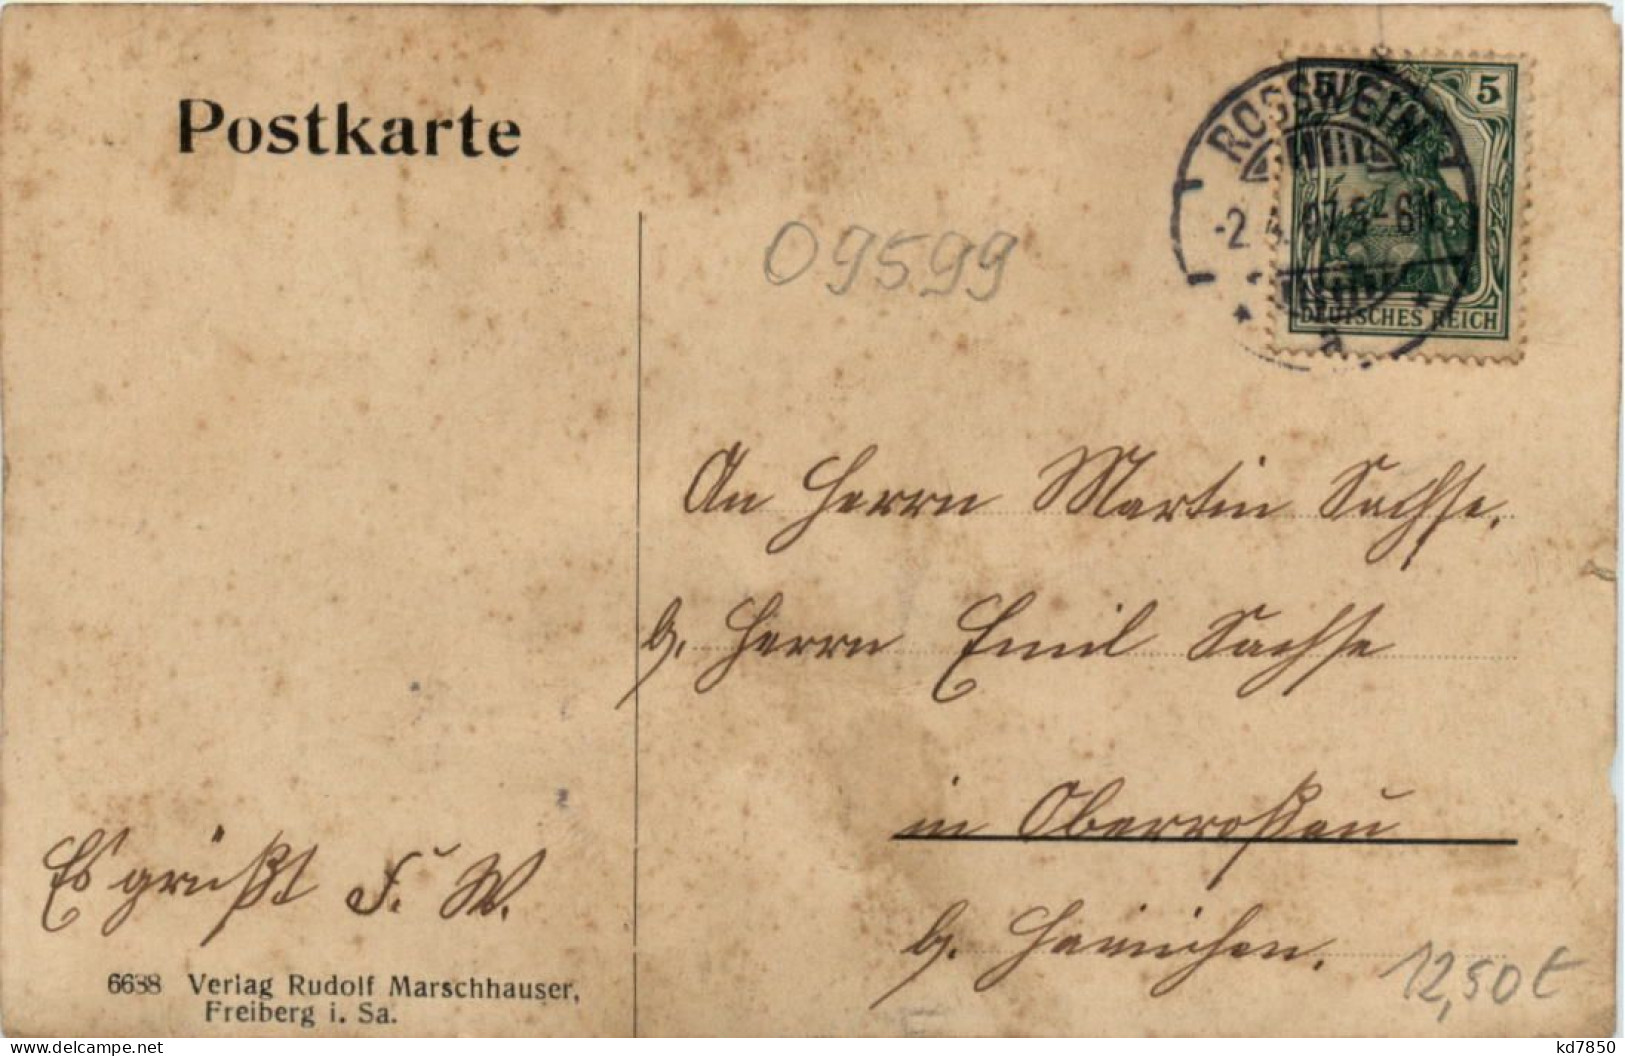 Postkarte
5 5
ROSSWEIN
-2.4.07.5-6N.
DEUTSCHES REICH
a
09599
An Herrn Martin Sachse.
b. Herrn Emil Sachse
in Oberroßau
b. Hainichen.
Es grüßt F. W.
6638 Verlag Rudolf Marschhauser,
Freiberg i. Sa.
12,50 €
www.delcampe.net
kd7850